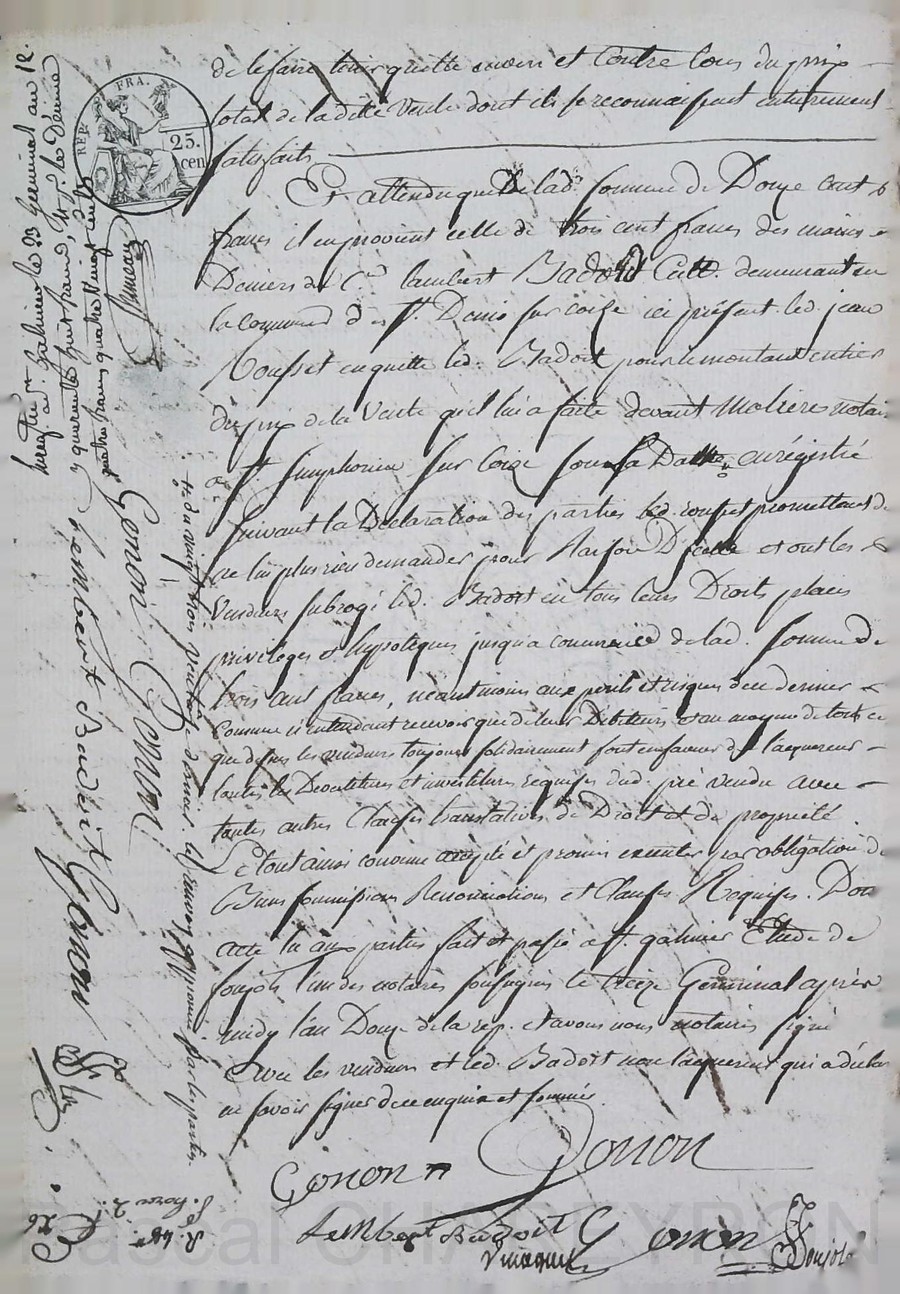 de le faire tenir quitte envers et Contre tous du prix
total de la ditte Vente dont ils se reconnaissent entierement
satisfaits
Et attendu que de lad. somme de Douze cent
francs il en provient celle de trois cent francs des mains
Deniers de C.en lambert Badoit Cult. demeurant en
la Commune de St. Denis sur coise ici présent. led. jean
Rousset en quitte led. Badoit pour le montant entier
du prix de la Vente qu'il lui a faite devant Molieres notaire
a St. Simphorien sur Coize sous sa Datte enrégistré
suivant la Déclaration des parties led. rousset promettant de
ne lui plus rien demander pour Raison D'icelle et ont les
Vendeurs subrogé led. Badoit en tous leurs Droits places
privileges et hypoteques jusqu'a concurrence de lad. somme de
trois cent francs, néantmoins aux perils et risques de ce dernier
comme n'entendant recevoir que de leur Débiteur et au moyen de tout ce
que dessus les vendeurs toujours solidairement font en faveur de l'acquereur
toutes les Devetitures et investitures requises dud. pré vendu avec
toutes autres Clauses translatives de Droit et de propriété.
Le tout ainsi convenu accepté et promis executer par obligation de
Biens soumissions Renonciations et Clauses Requises. Dont
acte lu aux parties fait et passé a St. galmier Etude de
soujols l'un des notaires soussignés le treize Germinal après
midy l'an Douze de la rep. et avons nous notaires signé
avec les vendeurs et led. Badoit non l'acquereur qui a déclaré
ne savoir signer de ce enquis et sommé.
Gonon Gonon
Lembert Badoit Gonon
Soujols
REP. FRA.
25.
cen
galmier le 23 Germinal an 12.
quarante huit francs,
quatre francs quatre vingt
Gonon Gonon
Lembert Badoit Gonon
du vingt trois ventose dernier. le renvoy approuvé par les parties.
Pascal CHAMBEYRON